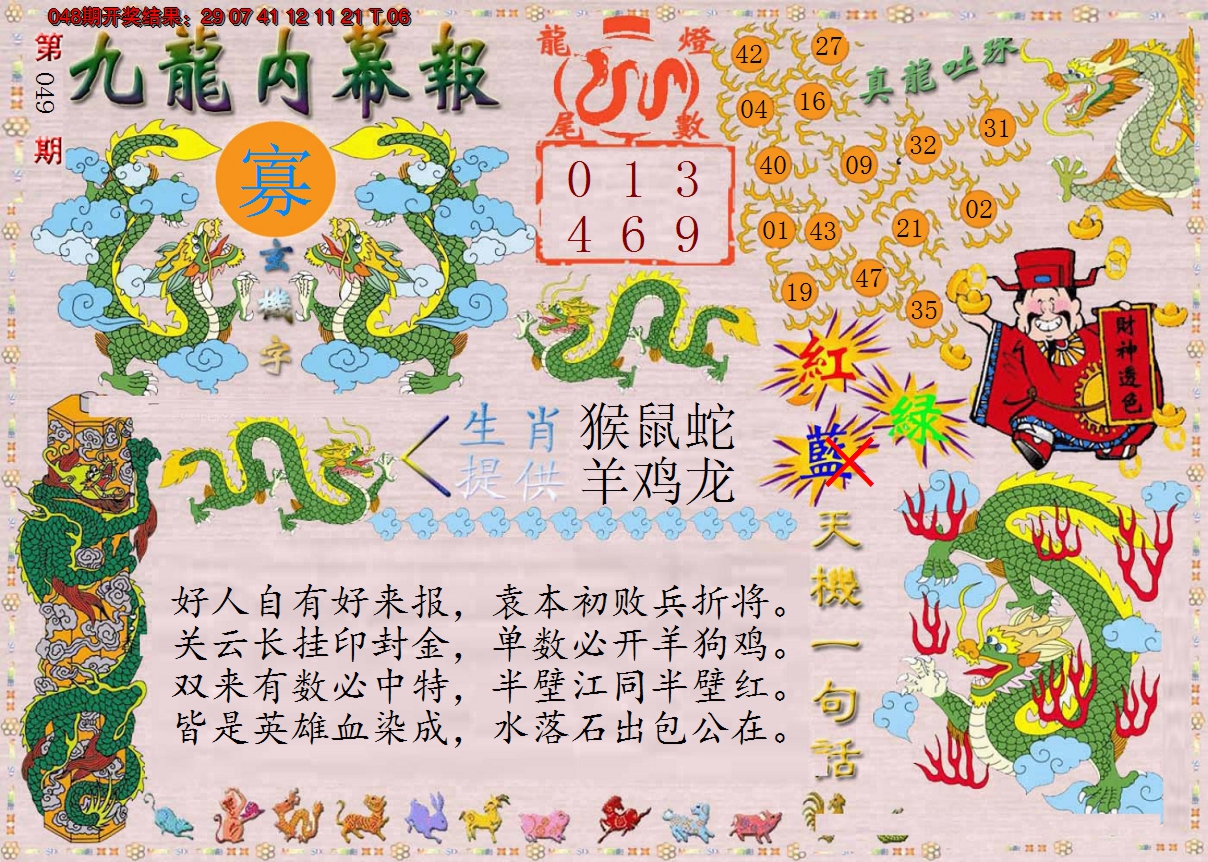 048期开奖结果：29 07 41 12 11 21 T 06
第049期
九龍内幕報
寡
玄機字
龍燈
尾數
0 1 3
4 6 9
真龍吐珠
42
27
04
16
31
32
40
09
02
01
43
21
47
19
35
財神透色
紅
綠
藍
生肖 猴鼠蛇
提供 羊鸡龙
天機一句话
好人自有好来报，袁本初败兵折将。
关云长挂印封金，单数必开羊狗鸡。
双来有数必中特，半壁江同半壁红。
皆是英雄血染成，水落石出包公在。